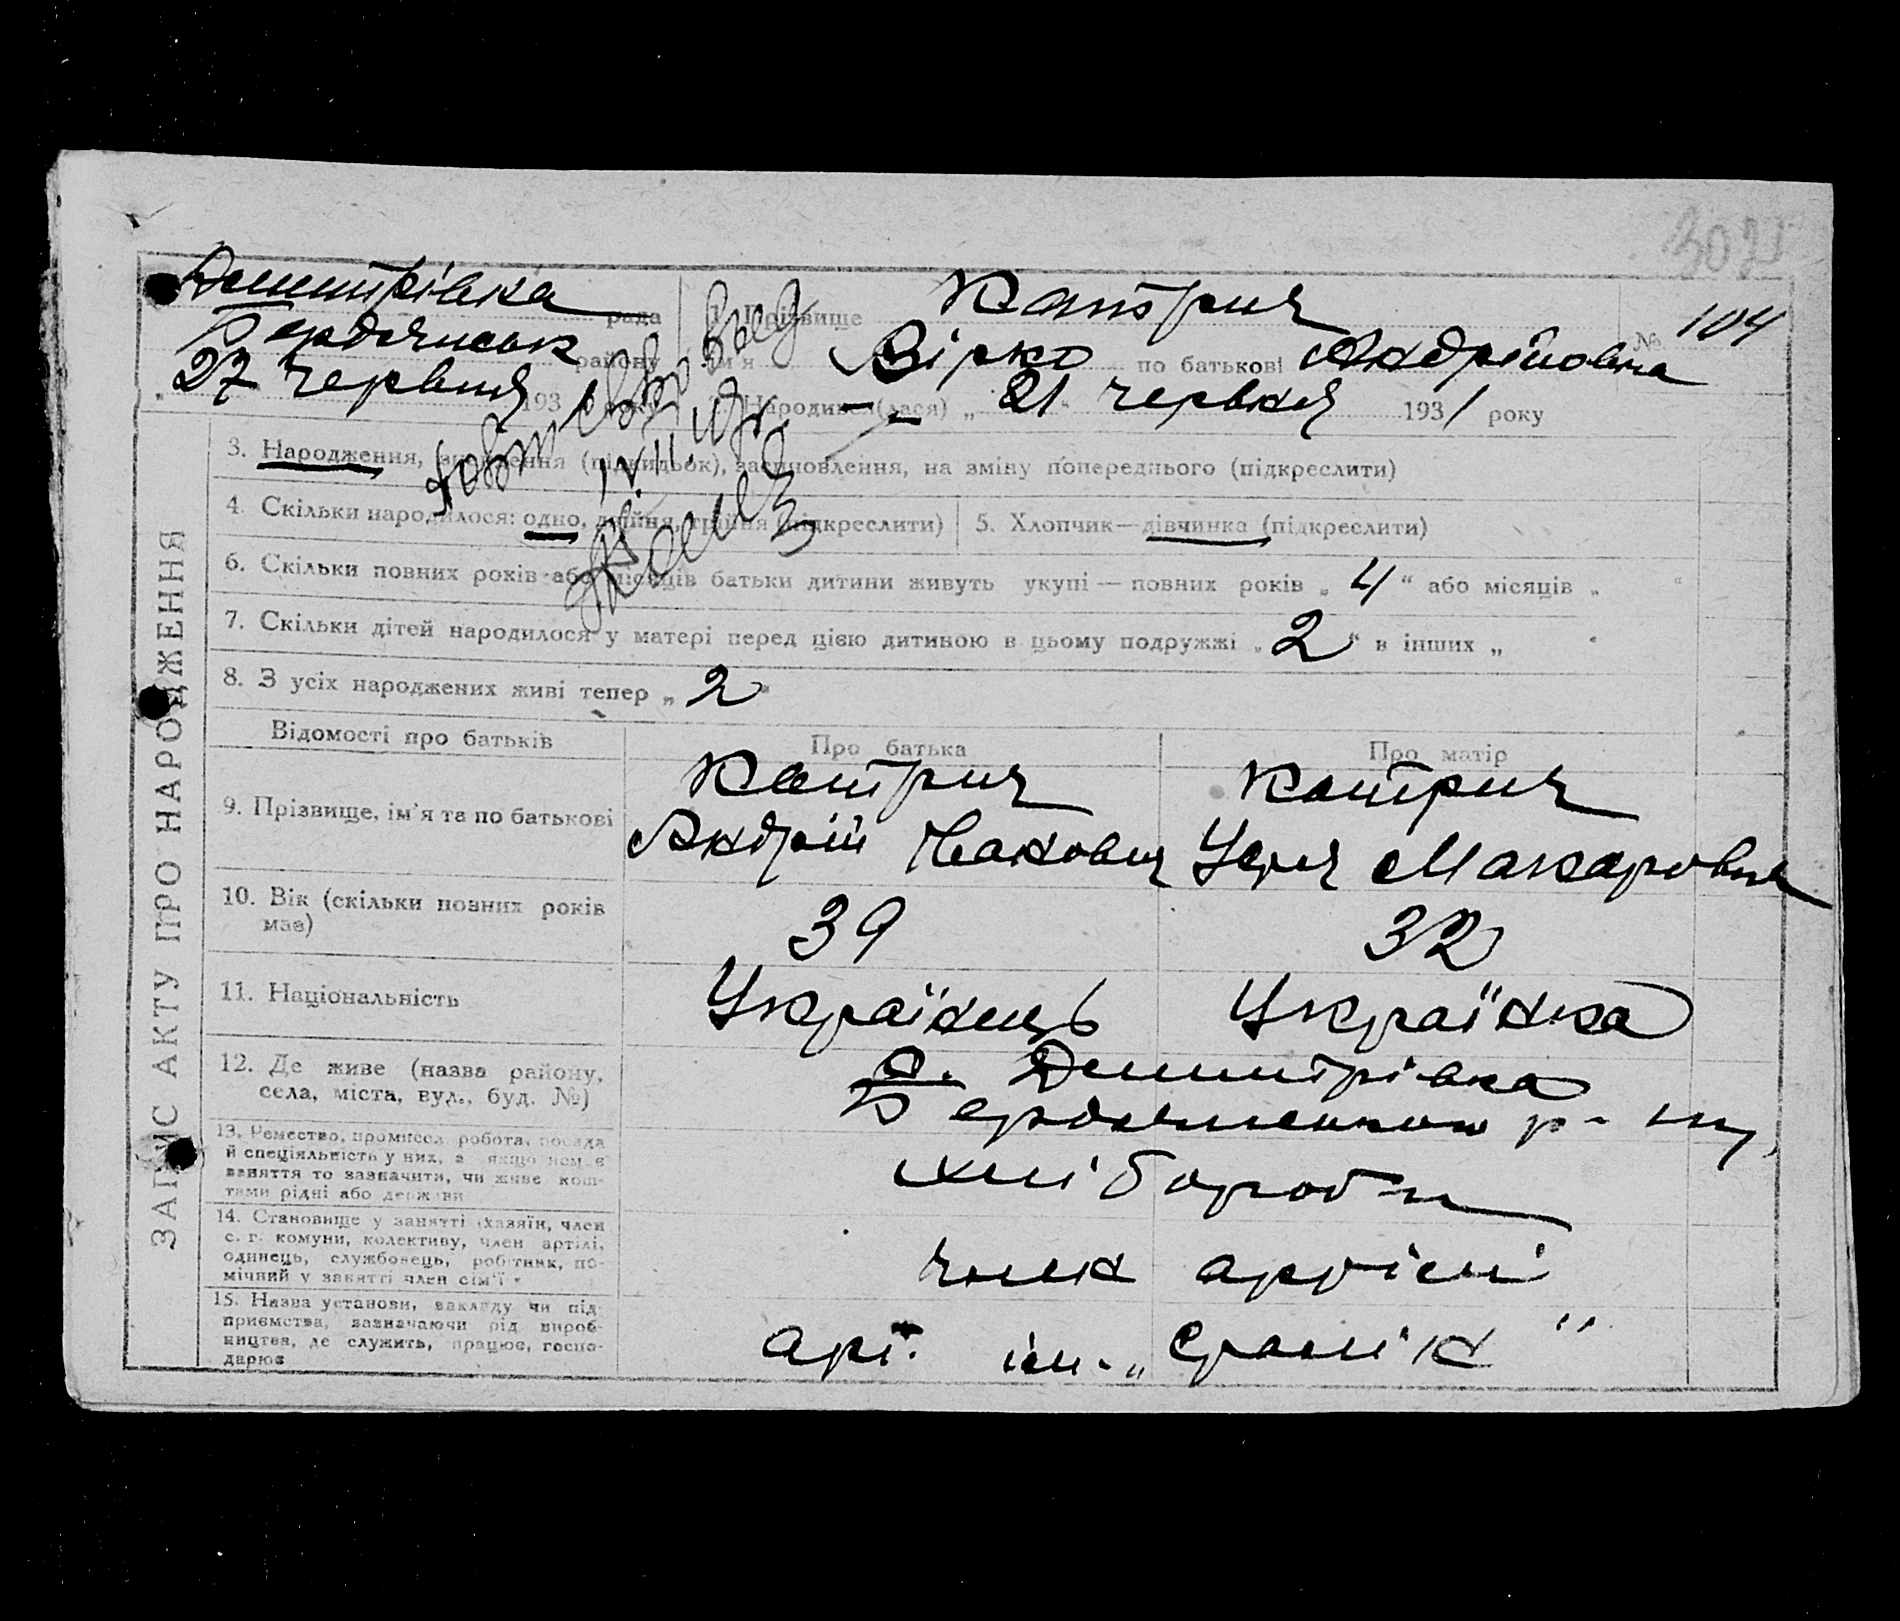 3021
Дмитрівка рада 1. Прізвище Катрич № 104
Бердянськ району Ім'я Вірко по батькові Андрійовна
„ 27 червня 193 року 2. Народився(лася) „ 21 червня 1931 року
3. Народження, (підкидьок), засиновлення, на зміну попереднього (підкреслити)
4. Скільки народилося: одно, двійня, трійня (підкреслити) 5. Хлопчик—дівчинка (підкреслити)
6. Скільки повних років або місяців батьки дитини живуть укупі — повних років „ 4 “ або місяців „ “
7. Скільки дітей народилося у матері перед цією дитиною в цьому подружжі „ 2 “ в інших „ “
8. З усіх народжених живі тепер „ 2 “
Відомості про батьків Про батька Про матір
9. Прізвище, ім'я та по батькові Катрич Катрич
Андрій Макарович
10. Вік (скільки повних років має) 39 32
11. Національність Українець Українка
12. Де живе (назва району, села, міста, вул., буд. №) с. Дмитрівка
р-ну
13. Ремество, промисел робота, посада
й спеціяльність у них, а якщо нема є
заняття то зазначити, чи живе кош-
тами рідні або держави
хлібороби
14. Становище у занятті (хазяїн, член
с. г. комуни, колективу, член артілі,
одинець, службовець, робітник, по-
мічний у занятті член сім'ї
член артілі
15. Назва установи, закладу чи під-
приємства, зазначаючи рід вироб-
ництва, де служить, працює, госпо-
дарює
арт. ім. „
ЗАПИС АКТУ ПРО НАРОДЖЕННЯ